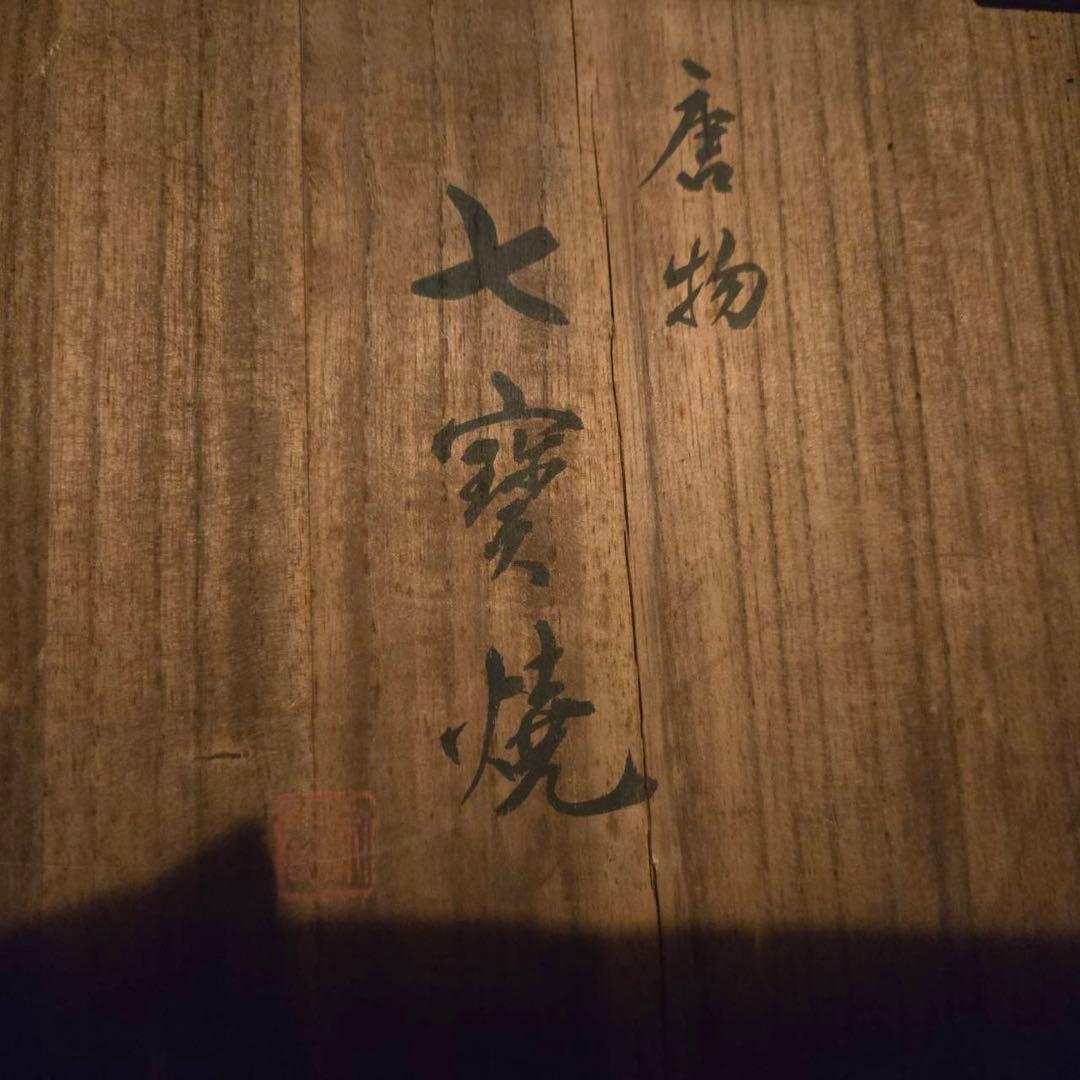 唐物
七寳燒